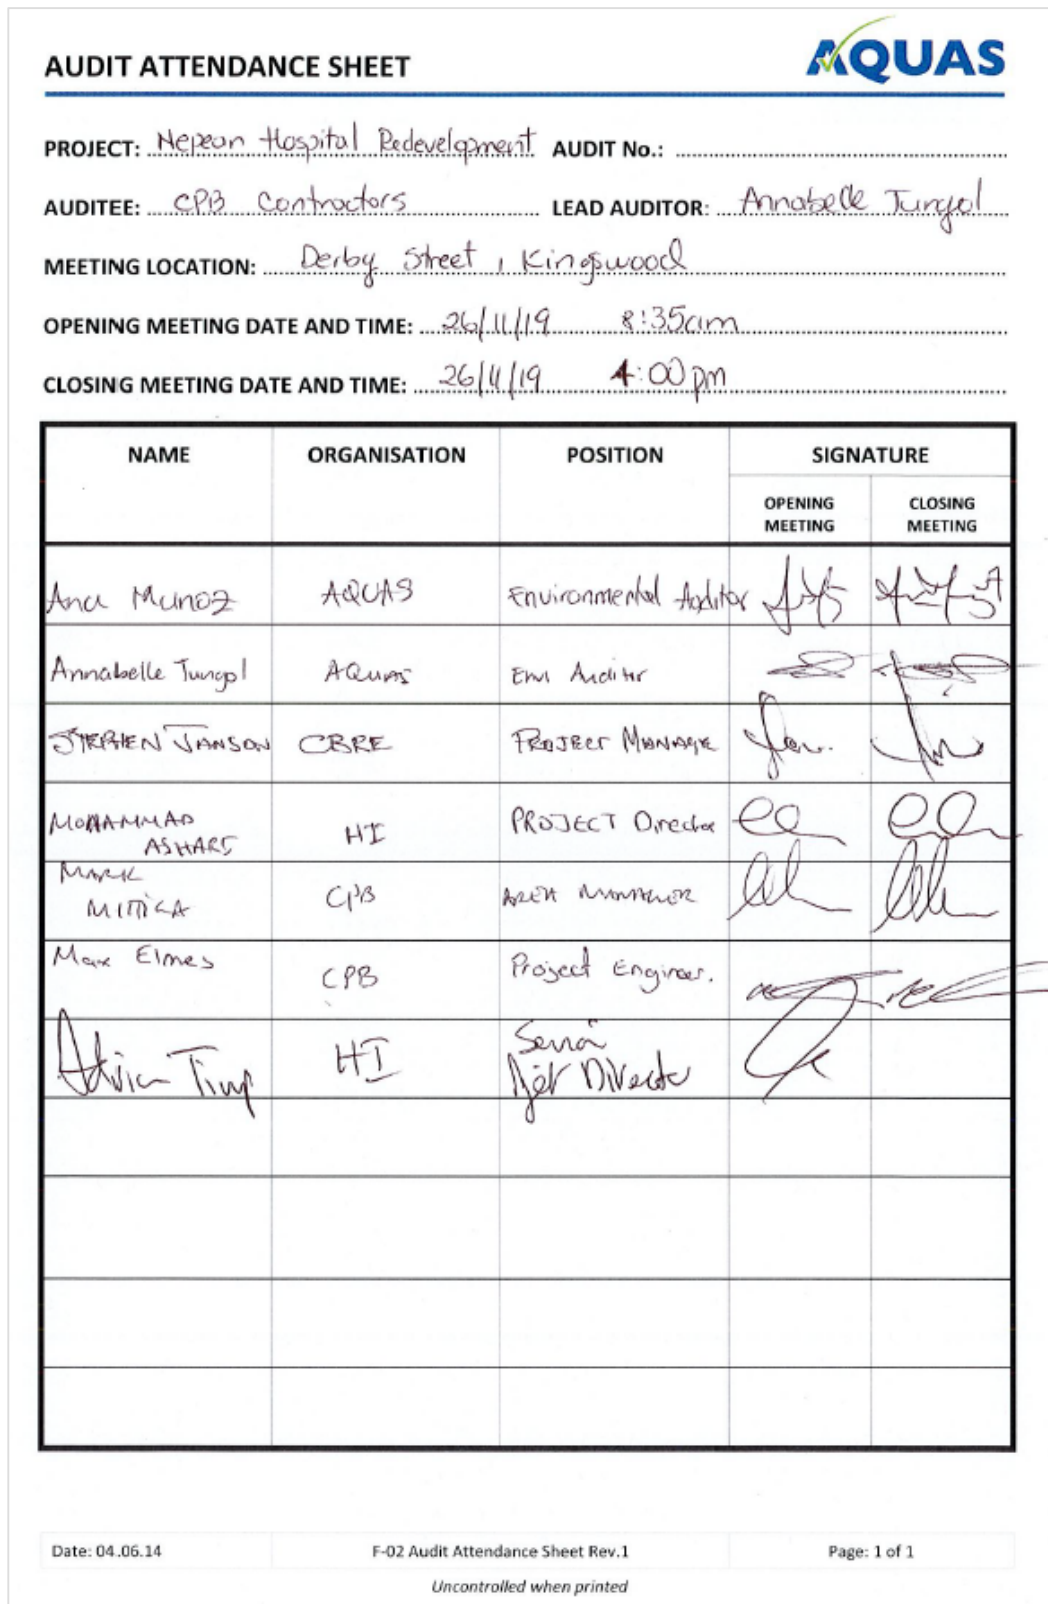 AQUAS
AUDIT ATTENDANCE SHEET
PROJECT: Nepean Hospital Redevelopment AUDIT No.:
AUDITEE: CPB Contractors LEAD AUDITOR: Annabelle Tungol
MEETING LOCATION: Derby Street, Kingswood
OPENING MEETING DATE AND TIME: 26/11/19 8:35am
CLOSING MEETING DATE AND TIME: 26/11/19 4:00pm
NAME ORGANISATION POSITION SIGNATURE
OPENING MEETING CLOSING MEETING
Ana Munoz AQUAS Environmental Auditor
Annabelle Tungol AQUAS Env Auditor
STEPHEN JANSON CBRE PROJECT MANAGER
MOHAMMAD
ASHARI HI PROJECT Director
MARK
MITICA CPB AREA MANAGER
Max Elmes CPB Project Engineer.
HI Senior
Director
Date: 04.06.14 F-02 Audit Attendance Sheet Rev.1 Page: 1 of 1
Uncontrolled when printed